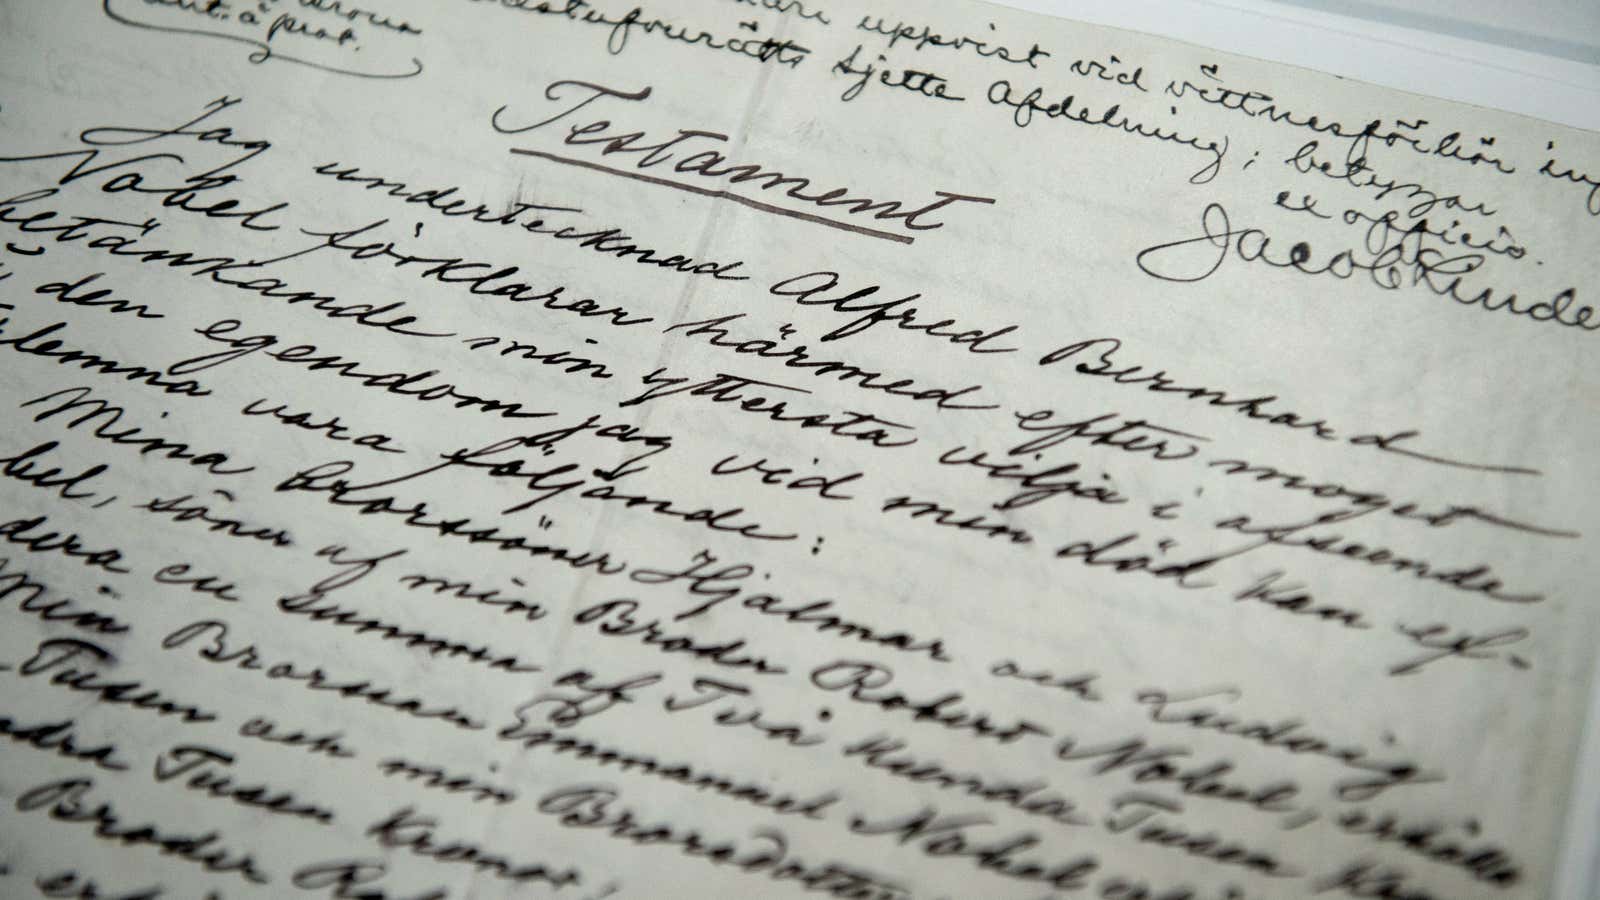 uppvist vid vittnesförhör inf
sjette Afdelning; betygar
ex officio.
Jacob Linde
ant. å prot.
Testament
Jag undertecknad Alfred Bernhard
Nobel förklarar härmed efter moget
betänkande min yttersta vilja i afseende
den egendom jag vid min död kan ef-
terlemna vara följande:
Mina Brorssöner Hjalmar och Ludvig
bel, söner af min Broder Robert Nobel, erhålla
dera en summa af Två Hundra Tusen Kro
Min Brorsson Emmanuel Nobel
Tusen och min Brorsdotter
ndra Tusen Kronor;
Broder Rob